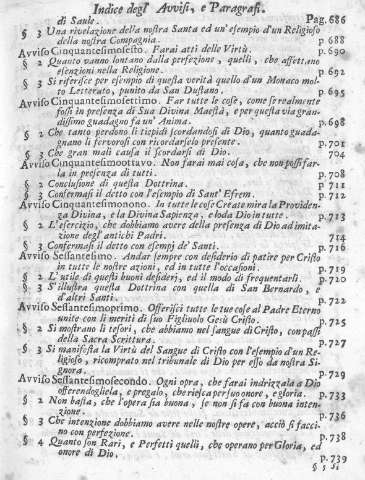 Indice degl' Avvisi, e Paragrafi.
di Saule. Pag. 686
§ 3 Una rivelazione della nostra Santa ed un' esempio d'un Religioso
della nostra Compagnia. p 688
Avviso Cinquantesimosesto. Farai atti delle Virtù. p. 690
§ 2 Quanto vanno lontano dalla perfezione, quelli, che affettano
esenzioni nella Religione. p 692
§ 3 Si riferisce per esempio di questa verità quello d'un Monaco molto
Letterato, punito da San Dustano. p 695
Avviso Cinquantesimosettimo. Far tutte le cose, come se realmente
fossi in presenza di Sua Divina Maestà, e per questa via grandissimo
guadagno fa un' Anima. p 698
§ 2 Che tanto perdono li tiepidi scordandosi di Dio, quanto guadagnano
li fervorosi con ricordarselo presente. p. 701
§ 3 Che gran mali causa il scordarsi di Dio. 704
Avviso Cinquantesimoottuvo. Non farai mai cosa, che non possi farla
in presenza di tutti. p 708
§ 2 Conclusione di questa Dottrina. p 711
§ 3 Confermasi il detto con l'esempio di Sant' Efrem. p. 712
Avviso Cinquantesimonono. In tutte le cose Create mira la Providenza
Divina, e la Divina Sapienza, e loda Dio in tutte. p 713
§ 2 L'esercizio, che dobbiamo avere della presenza di Dio ad imitazione
degl' antichi Padri. 714
§ 3 Confermasi il detto con esempj de' Santi. p 716
Avviso Sessantesimo. Andar sempre con desiderio di patire per Cristo
in tutte le nostre azioni, ed in tutte l'occasioni. p. 719
§ 2 L' utile di questi buoni desiderj, ed il modo di frequentarli. p 720
§ 3 S'illustra questa Dottrina con quella di San Bernardo, e
d'altri Santi. p 722
Avviso Sessantesimoprimo. Offerisci tutte le tue cose al Padre Eterno
unite con li meriti di suo Figliuolo Gesù Cristo. p 725
§ 2 Si mostrano li tesori, che abbiamo nel sangue di Cristo, con passi
della Sacra Scrittura. p 727
§ 3 Si manifesta la Virtù del Sangue di Cristo con l'esempio d'un Religioso,
ricomprato nel tribunale di Dio per esso da nostra Signora.
p. 729
Avviso Sessantesimosecondo. Ogni opra, che farai indrizzala a Dio
offerendogliela, e pregalo, che riesca per suo onore, e gloria. p 733
§ 2 Non basta, che l'opera sia buona, se non si fa con buona intenzione.
p 736
§ 3 Che intenzione dobbiamo avere nelle nostre opere, acciò si faccino
con perfezione. p. 738
§ 4 Quanto son Rari, e Perfetti quelli, che operano per Gloria, ed
onore di Dio. p. 739
§ 5 Si